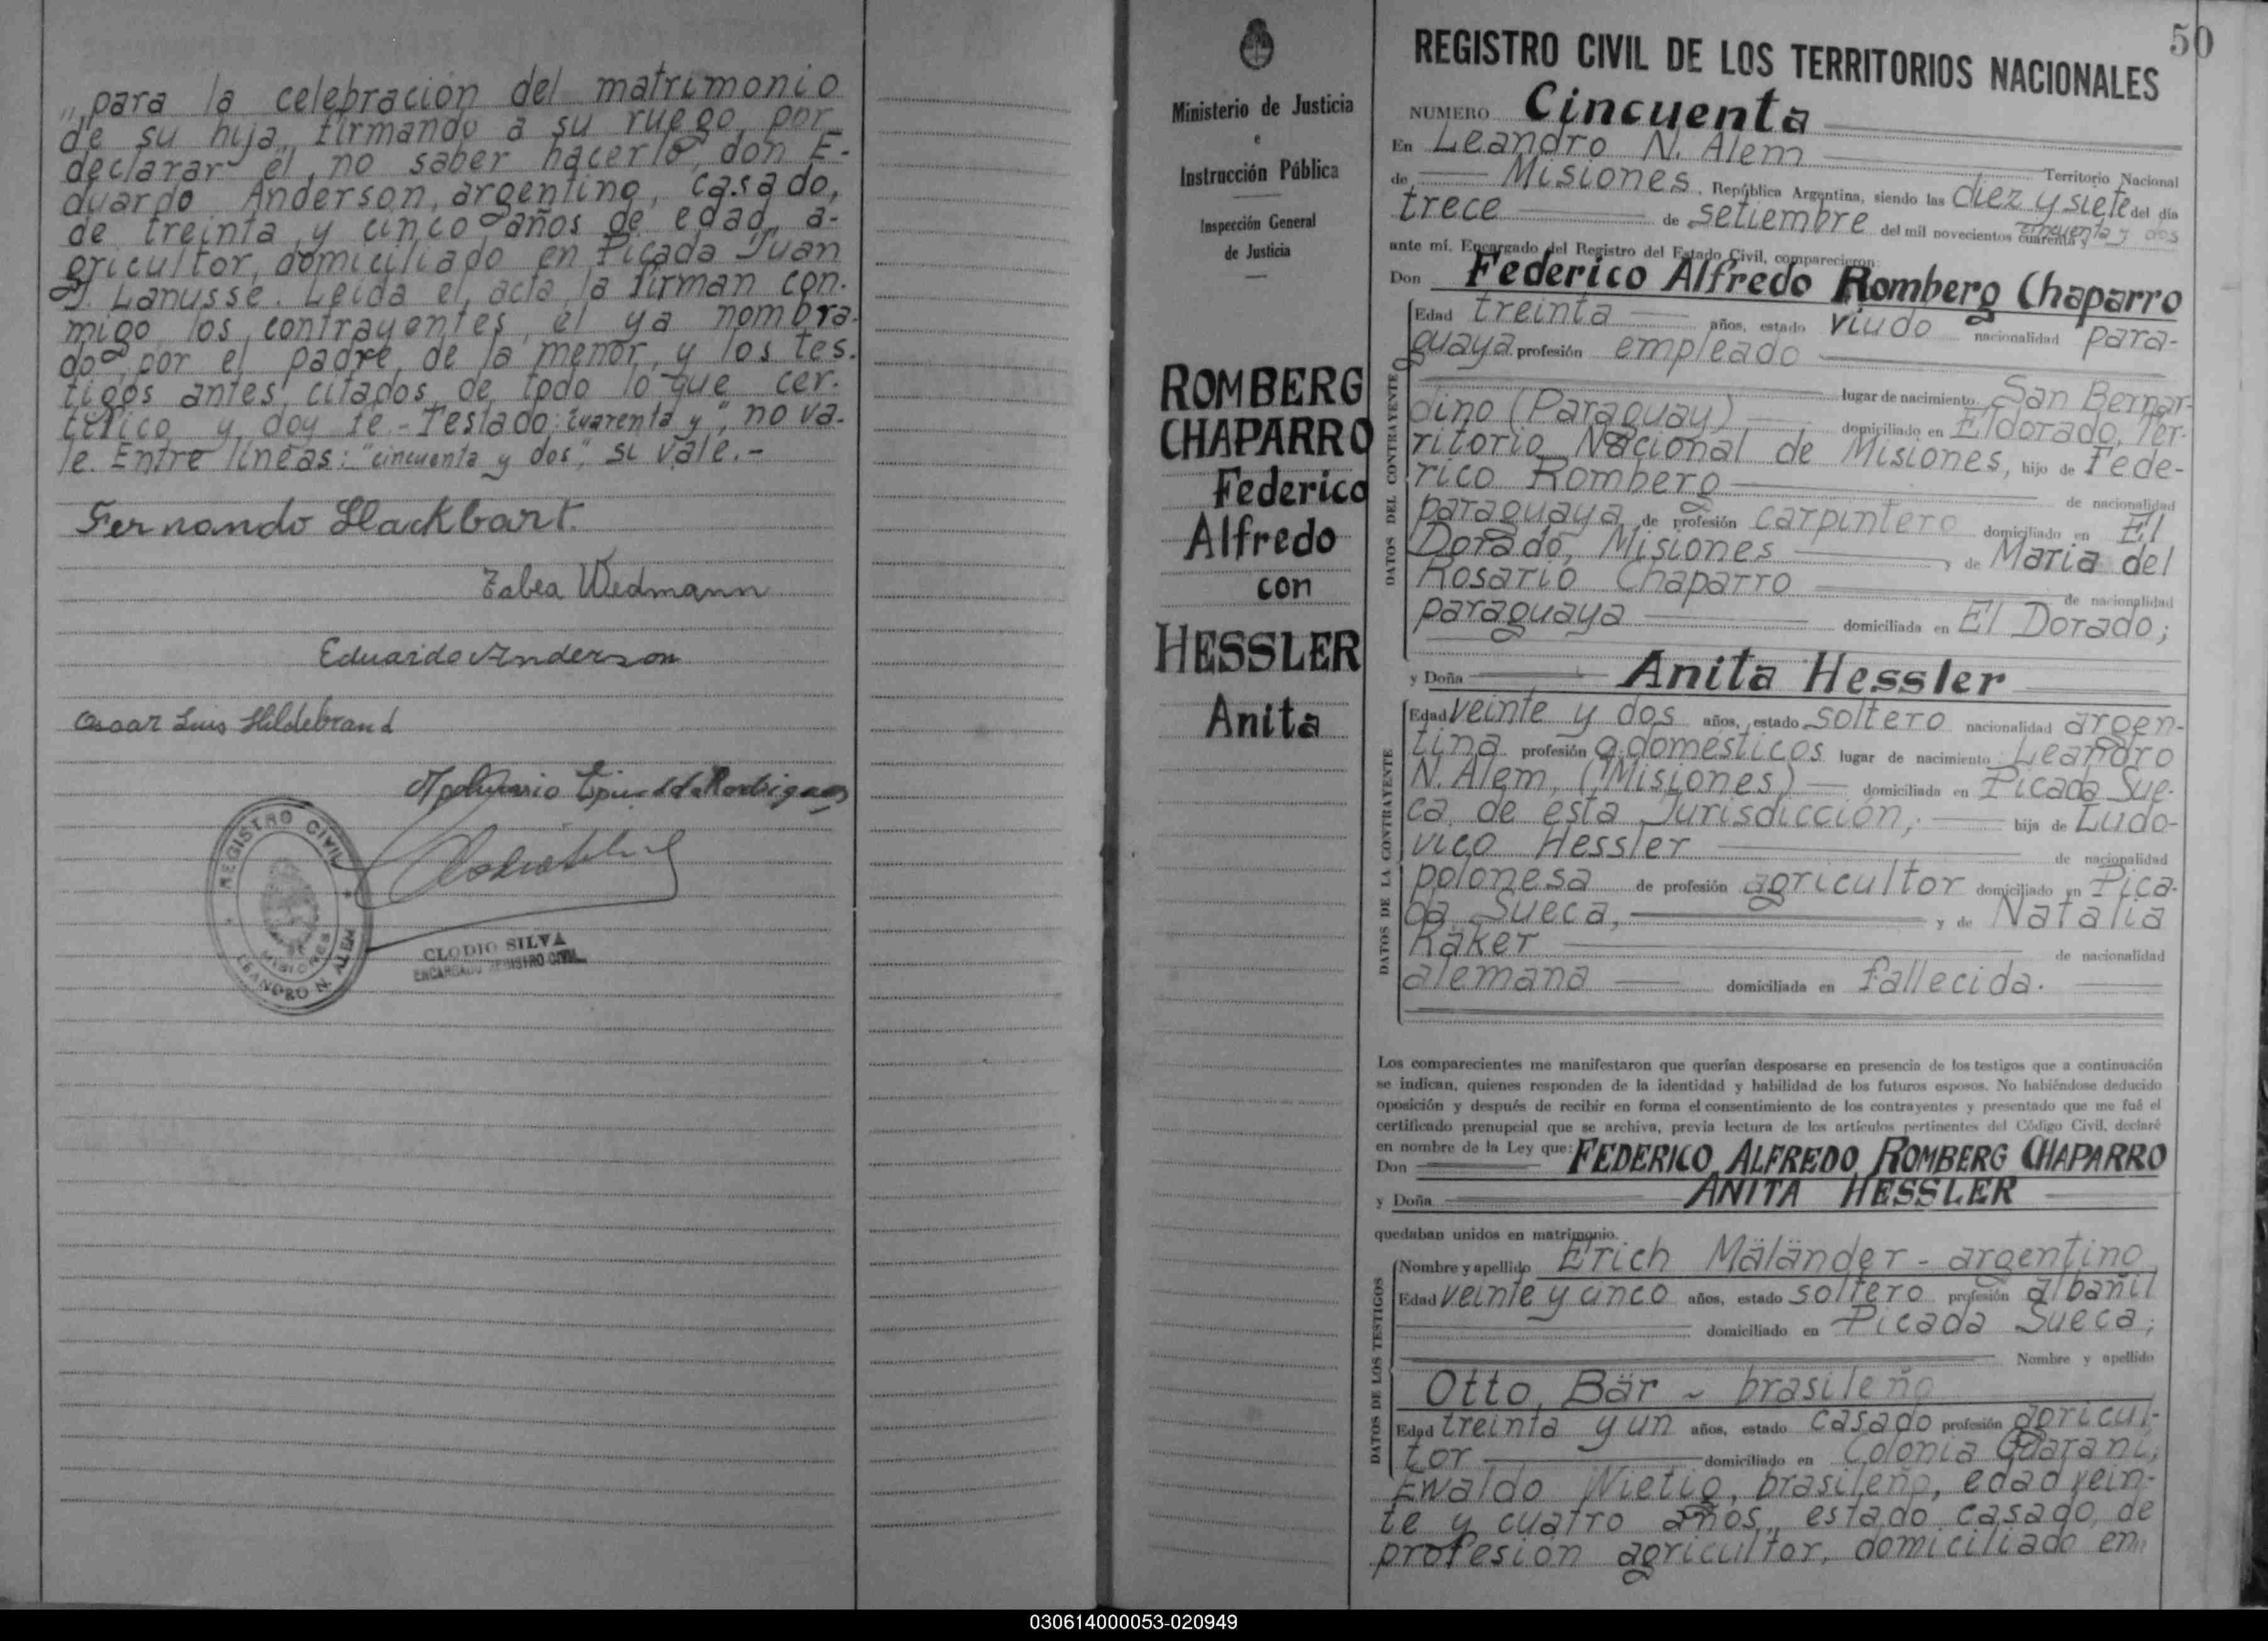 "para la celebración del matrimonio
de su hija, firmando a su ruego, por
declarar él, no saber hacerlo, don E-
duardo Anderson, argentino, casado,
de treinta y cinco años de edad, a-
gricultor, domiciliado en Picada Juan
J. Lanusse. Leída el acta, la firman con-
migo los contrayentes, el ya nombra-
do por el padre de la menor, y los tes-
tigos antes citados, de todo lo que cer-
tifico y doy fe.- Testado: "cuarenta y", no va-
le. Entre líneas: "cincuenta y dos", si vale.-
Fernando Hackbart.
Tabea Wedmann
Eduardo Anderson
Oscar Luis Hildebrand
Rodrigues
REGISTRO CIVIL
MISIONES
LEANDRO N. ALEM
CLODIO SILVA
ENCARGADO REGISTRO CIVIL
Ministerio de Justicia
e
Instrucción Pública
Inspección General
de Justicia
ROMBERG
CHAPARRO
Federico
Alfredo
con
HESSLER
Anita
50
REGISTRO CIVIL DE LOS TERRITORIOS NACIONALES
NUMERO Cincuenta
En Leandro N. Alem Territorio Nacional
de Misiones, República Argentina, siendo las diez y siete del día
trece de setiembre del mil novecientos cuarenta y cincuenta y dos
ante mí, Encargado del Registro del Estado Civil, comparecieron:
Don Federico Alfredo Romberg Chaparro
DATOS DEL CONTRAYENTE
Edad treinta años, estado viudo nacionalidad para-
guaya profesión empleado
lugar de nacimiento San Bernar-
dino (Paraguay) domiciliado en Eldorado, Ter-
ritorio Nacional de Misiones, hijo de Fede-
rico Romberg de nacionalidad
paraguaya de profesión carpintero domiciliado en El
Dorado, Misiones y de Maria del
Rosario Chaparro de nacionalidad
paraguaya domiciliada en El Dorado;
y Doña Anita Hessler
DATOS DE LA CONTRAYENTE
Edad veinte y dos años, estado soltero nacionalidad argen-
tina profesión q.domésticos lugar de nacimiento Leandro
N. Alem, (Misiones) domiciliada en Picada Sue-
ca, de esta Jurisdicción; hija de Ludo-
vico Hessler de nacionalidad
polonesa de profesión agricultor domiciliado en Pica-
da Sueca, y de Natalia
Raker de nacionalidad
alemana domiciliada en fallecida.
Los comparecientes me manifestaron que querían desposarse en presencia de los testigos que a continuación
se indican, quienes responden de la identidad y habilidad de los futuros esposos. No habiéndose deducido
oposición y después de recibir en forma el consentimiento de los contrayentes y presentado que me fué el
certificado prenupcial que se archiva, previa lectura de los artículos pertinentes del Código Civil, declaré
en nombre de la Ley que:
Don FEDERICO ALFREDO ROMBERG CHAPARRO
y Doña ANITA HESSLER
quedaban unidos en matrimonio.
DATOS DE LOS TESTIGOS
Nombre y apellido Erich Mäländer - argentino
Edad veinte y cinco años, estado soltero profesión albañil
domiciliado en Picada Sueca;
Nombre y apellido
Otto Bär - brasileño
Edad treinta y un años, estado casado profesión agricul-
tor domiciliado en Colonia Guaraní;
Ewaldo Nietig, brasileño, edad vein-
te y cuatro años, estado casado, de
profesión agricultor, domiciliado en
030614000053-020949